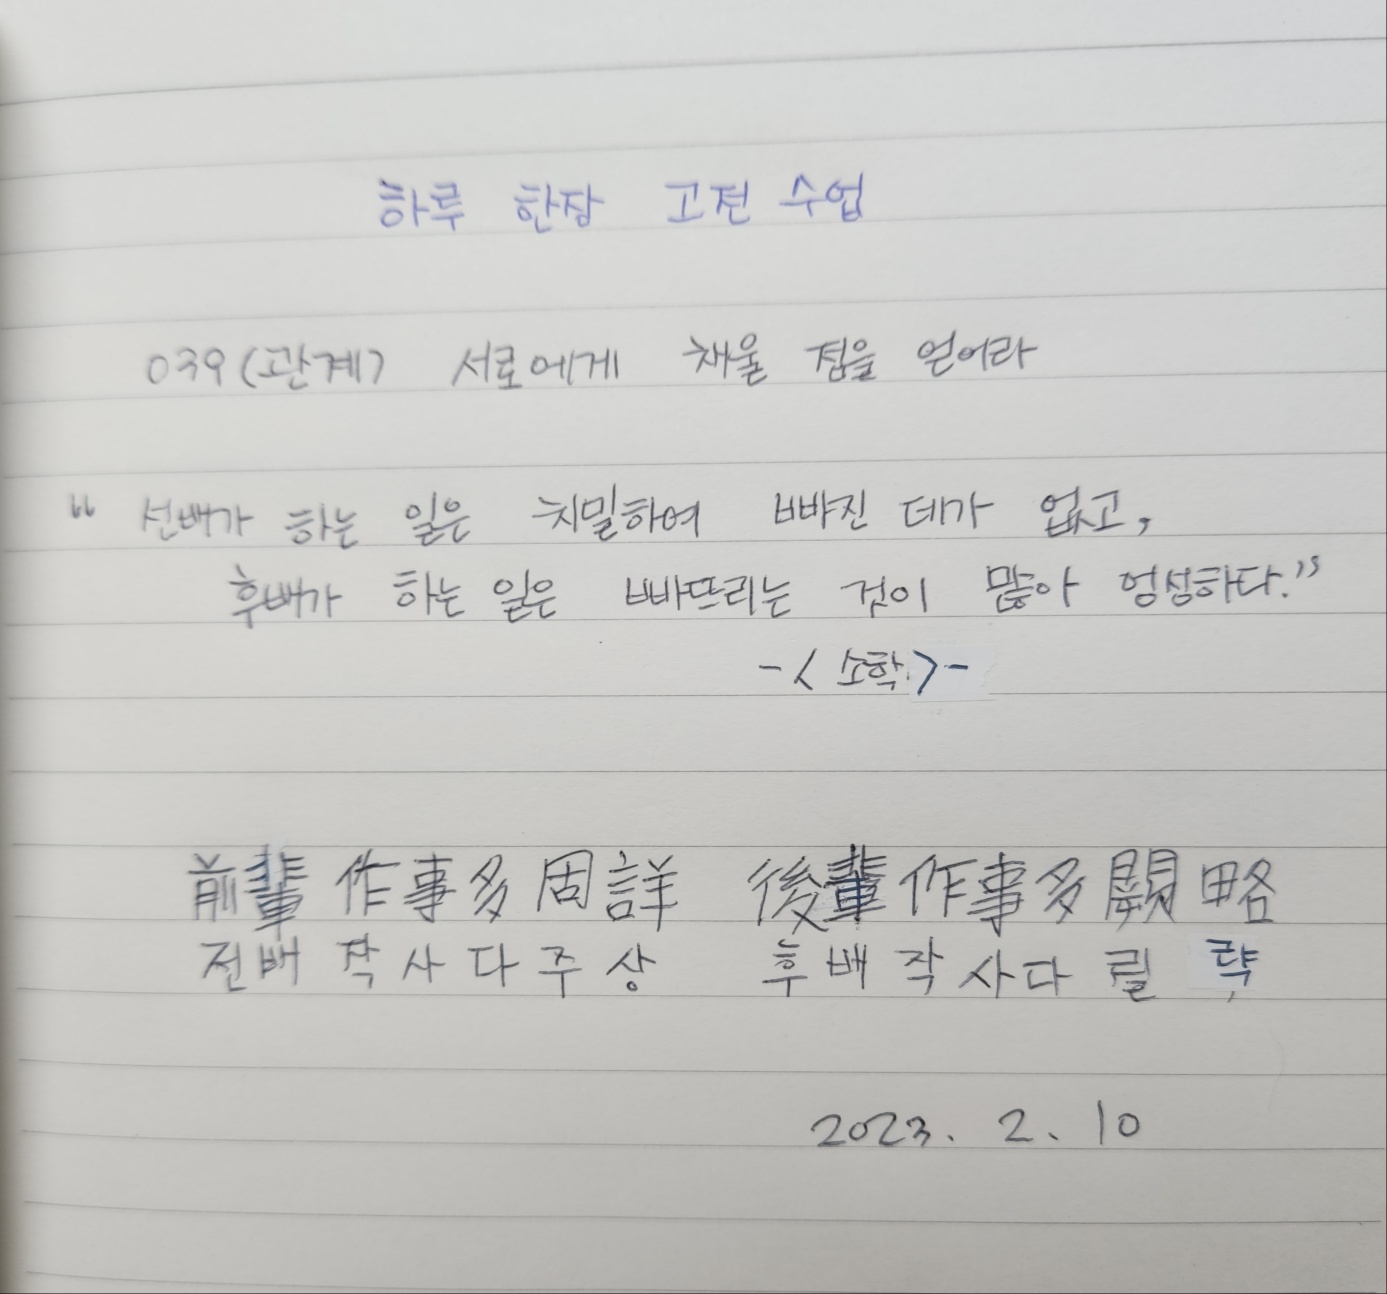 하루 한장 고전 수업
039(관계) 서로에게 채울 점을 얻어라
“ 선배가 하는 일은 치밀하여 빠진 데가 없고,
후배가 하는 일은 빠뜨리는 것이 많아 엉성하다.”
-< 소학 >-
前輩作事多周詳 後輩作事多闕略
전배작사다주상 후배작사다릴략
2023. 2. 10